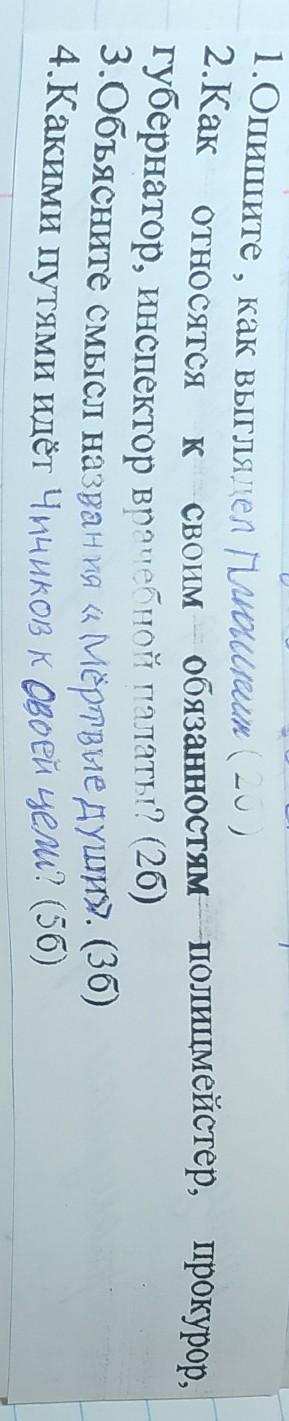 1.Опишите , как выглядел Плюшкин (2б)
2.Как относятся к своим обязанностям полицмейстер, прокурор,
губернатор, инспектор врачебной палаты? (2б)
3.Объясните смысл названия «Мёртвые души». (3б)
4.Какими путями идёт Чичиков к своей цели? (5б)